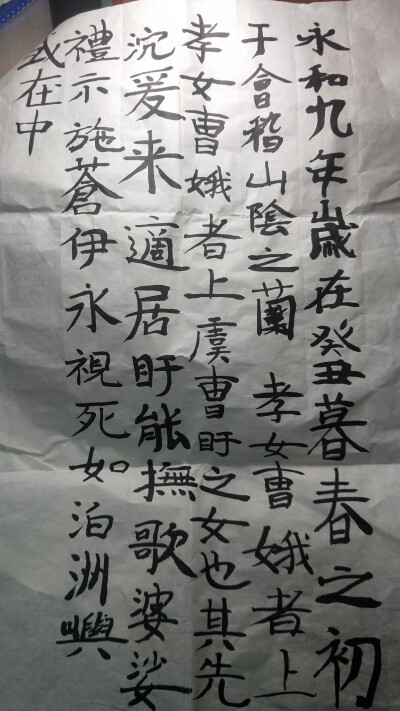 永和九年歲在癸丑暮春之初
于會稽山陰之蘭 孝女曹娥者上
孝女曹娥者上虞曹盱之女也其先
沉爰来適居盱能撫歌婆娑
禮示施蒼伊永視死如泊洲嶼
或在中